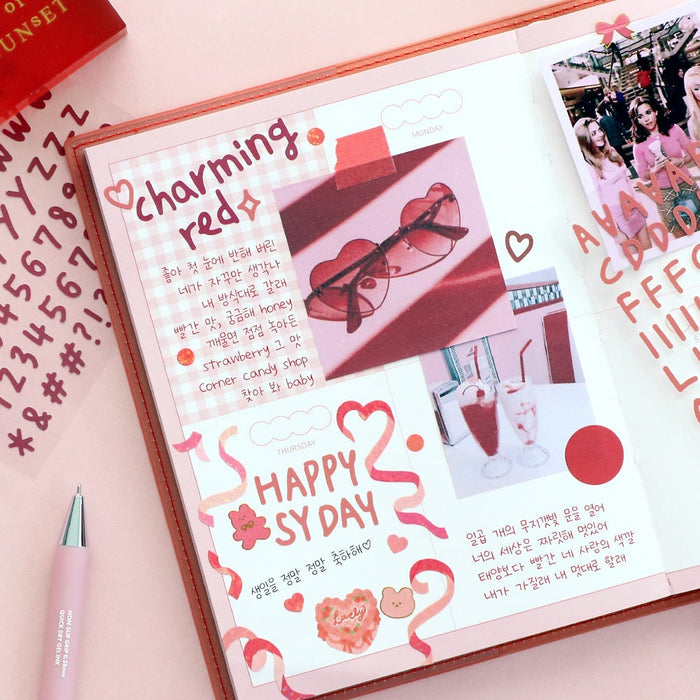 OF
SUNSET
MONDAY
charming
red
좋아 첫 눈에 반해 버린
네가 자꾸만 생각나
내 방식대로 갈래
빨간 맛, 궁금해 honey
깨물면 점점 녹아든
strawberry 그 맛
corner candy shop
찾아 봐 baby
THURSDAY
HAPPY
SY DAY
생일을 정말 정말 축하해♡
Lovely
일곱 개의 무지갯빛 문을 열어
너의 세상은 짜릿해 멋있어
태양보다 빨간 네 사랑의 색깔
내가 가질래 내 멋대로 할래
NON-SLIP GRIP 0.38mm
QUICK DRY GEL INK
YYYZZZ
5678
45678
12345
*&##?!
AAAAAA
CDDDD
FFFG
IIIIII